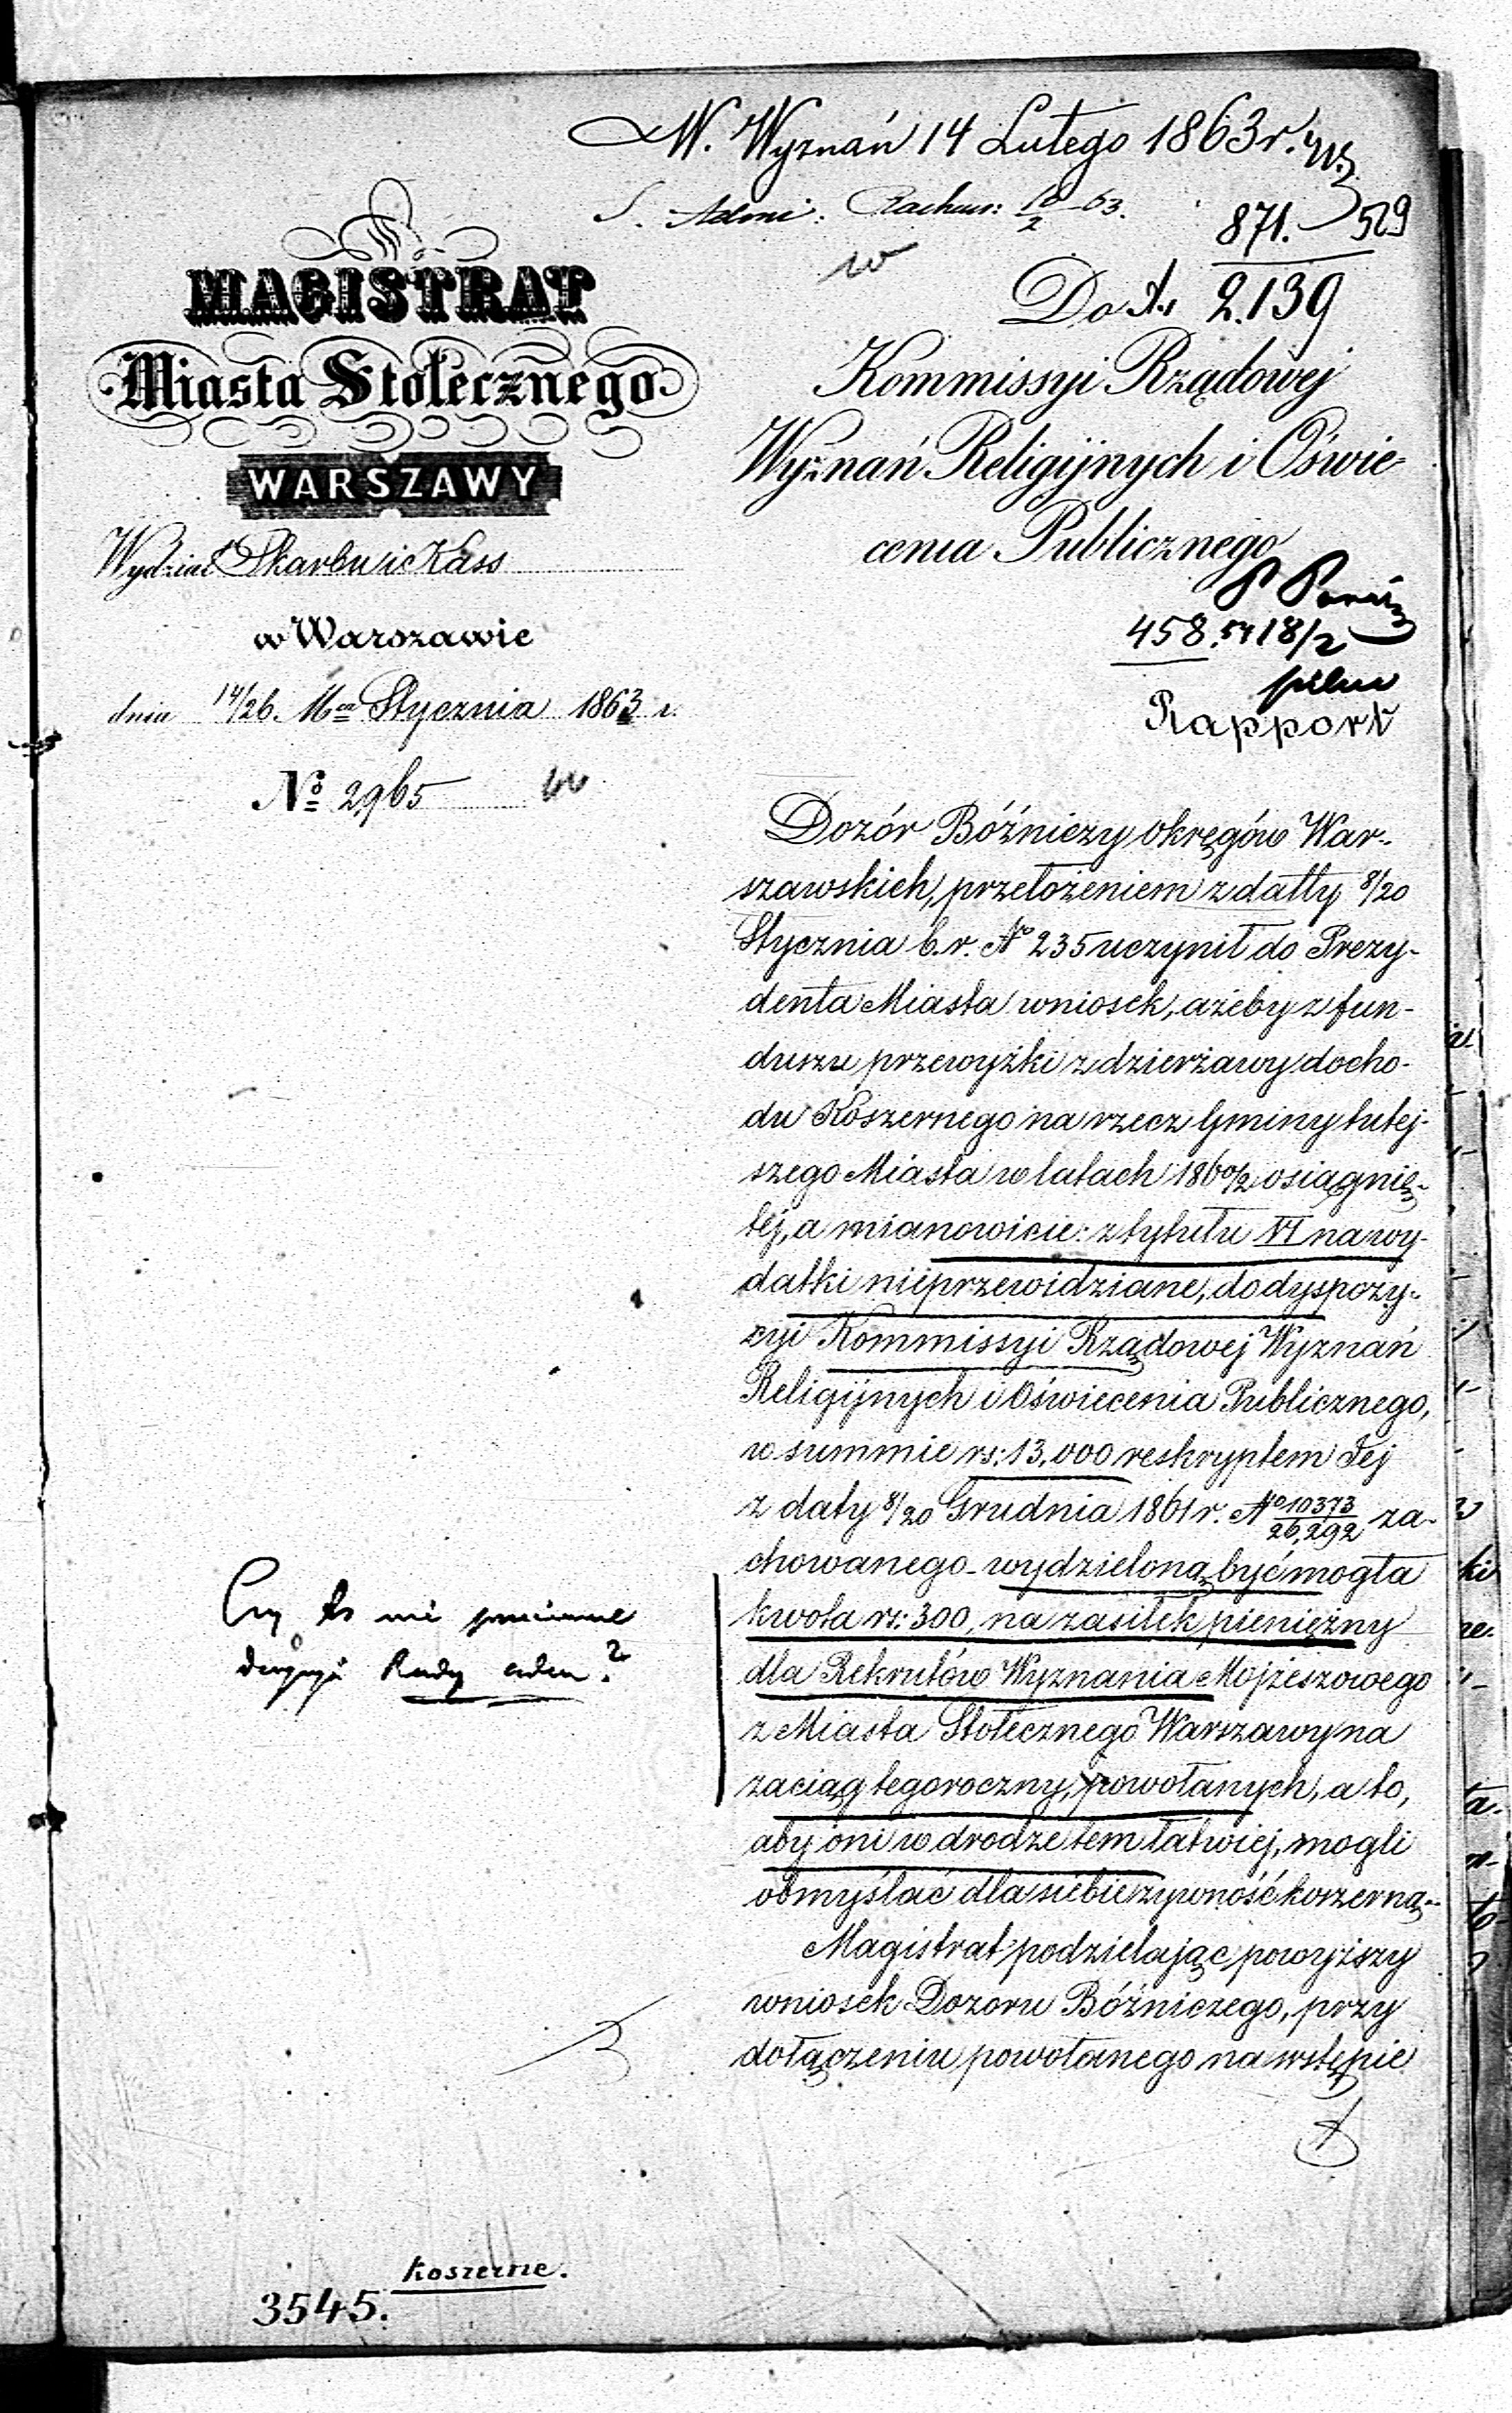 W. Wyznań 14 Lutego 1863 r.
871. 529
Do № 2.139
MAGISTRAT
Miasta Stołecznego
WARSZAWY
Wydział Skarbu i Kass
w Warszawie
dnia 14/26. Mca Stycznia 1863 r.
№ 2965
Kommissyi Rządowej
Wyznań Religijnych i Oświe-
cenia Publicznego
458. 18/2
pilne
Rapport
Dozór Bóźniczy Okręgów War-
szawskich, przełożeniem z datty 8/20
Stycznia b.r. № 235 uczynił do Prezy-
denta Miasta wniosek, ażeby z fun-
duszu przewyżki z dzierżawy docho-
du Koszernego na rzecz Gminy tutej-
szego Miasta w latach 1860/2 osiągnię-
tej, a mianowicie: z tytułu VI na wy-
datki nieprzewidziane, do dyspozy-
cyi Kommissyi Rządowej Wyznań
Religijnych i Oświecenia Publicznego,
w summie rs: 13.000 reskryptem Jej
z daty 8/20 Grudnia 1861 r. № 10373/26,292 za-
chowanego - wydzieloną być mogła
kwota rs: 300, na zasiłek pieniężny
dla Rekrutów Wyznania Mojżeszowego
z Miasta Stołecznego Warszawy na
zaciąg tegoroczny, powołanych, a to,
aby oni w drodze tem łatwiej, mogli
obmyślać dla siebie żywność koszerną.-
Magistrat podzielając powyższy
wniosek Dozoru Bóźniczego, przy
dołączeniu powołanego na wstępie
Czy to nie
Rady
koszerne.
3545.